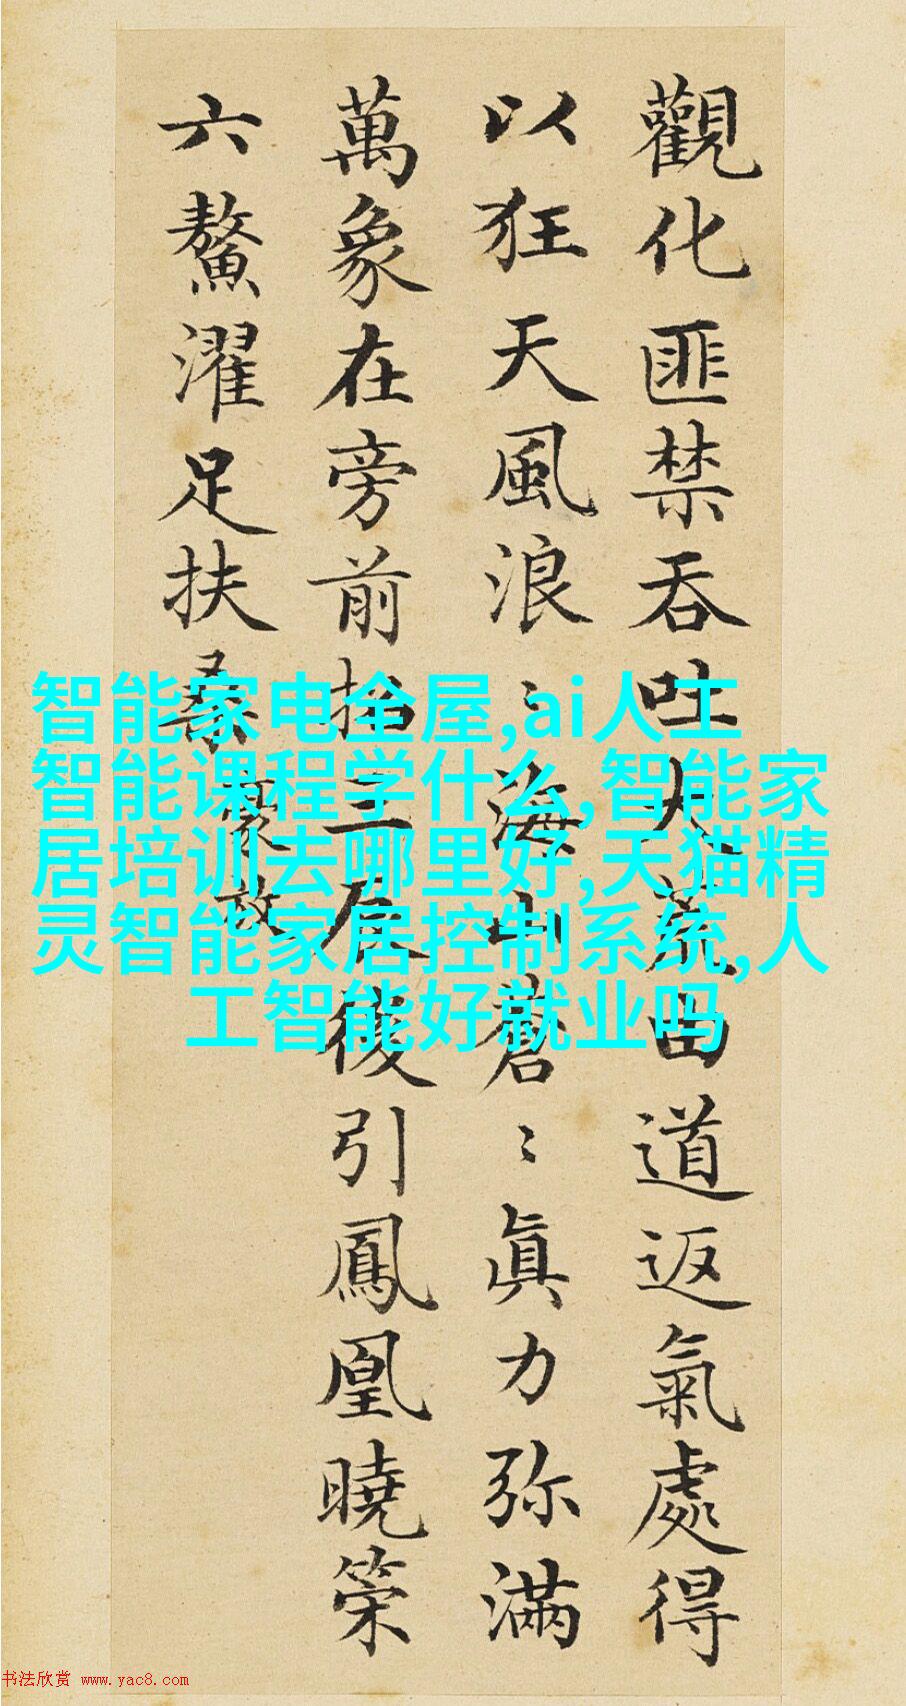 觀化匪禁吞吐大荒由道返氣處得
以狂天風浪〻海山蒼〻眞力弥滿
萬象在旁前招三辰後引鳳凰曉策
六鰲濯足扶桑
豪放
智能家电全屋,ai人工
智能课程学什么,智能家
居培训去哪里好,天猫精
灵智能家居控制系统,人
工智能好就业吗
书法欣赏 www.yac8.com